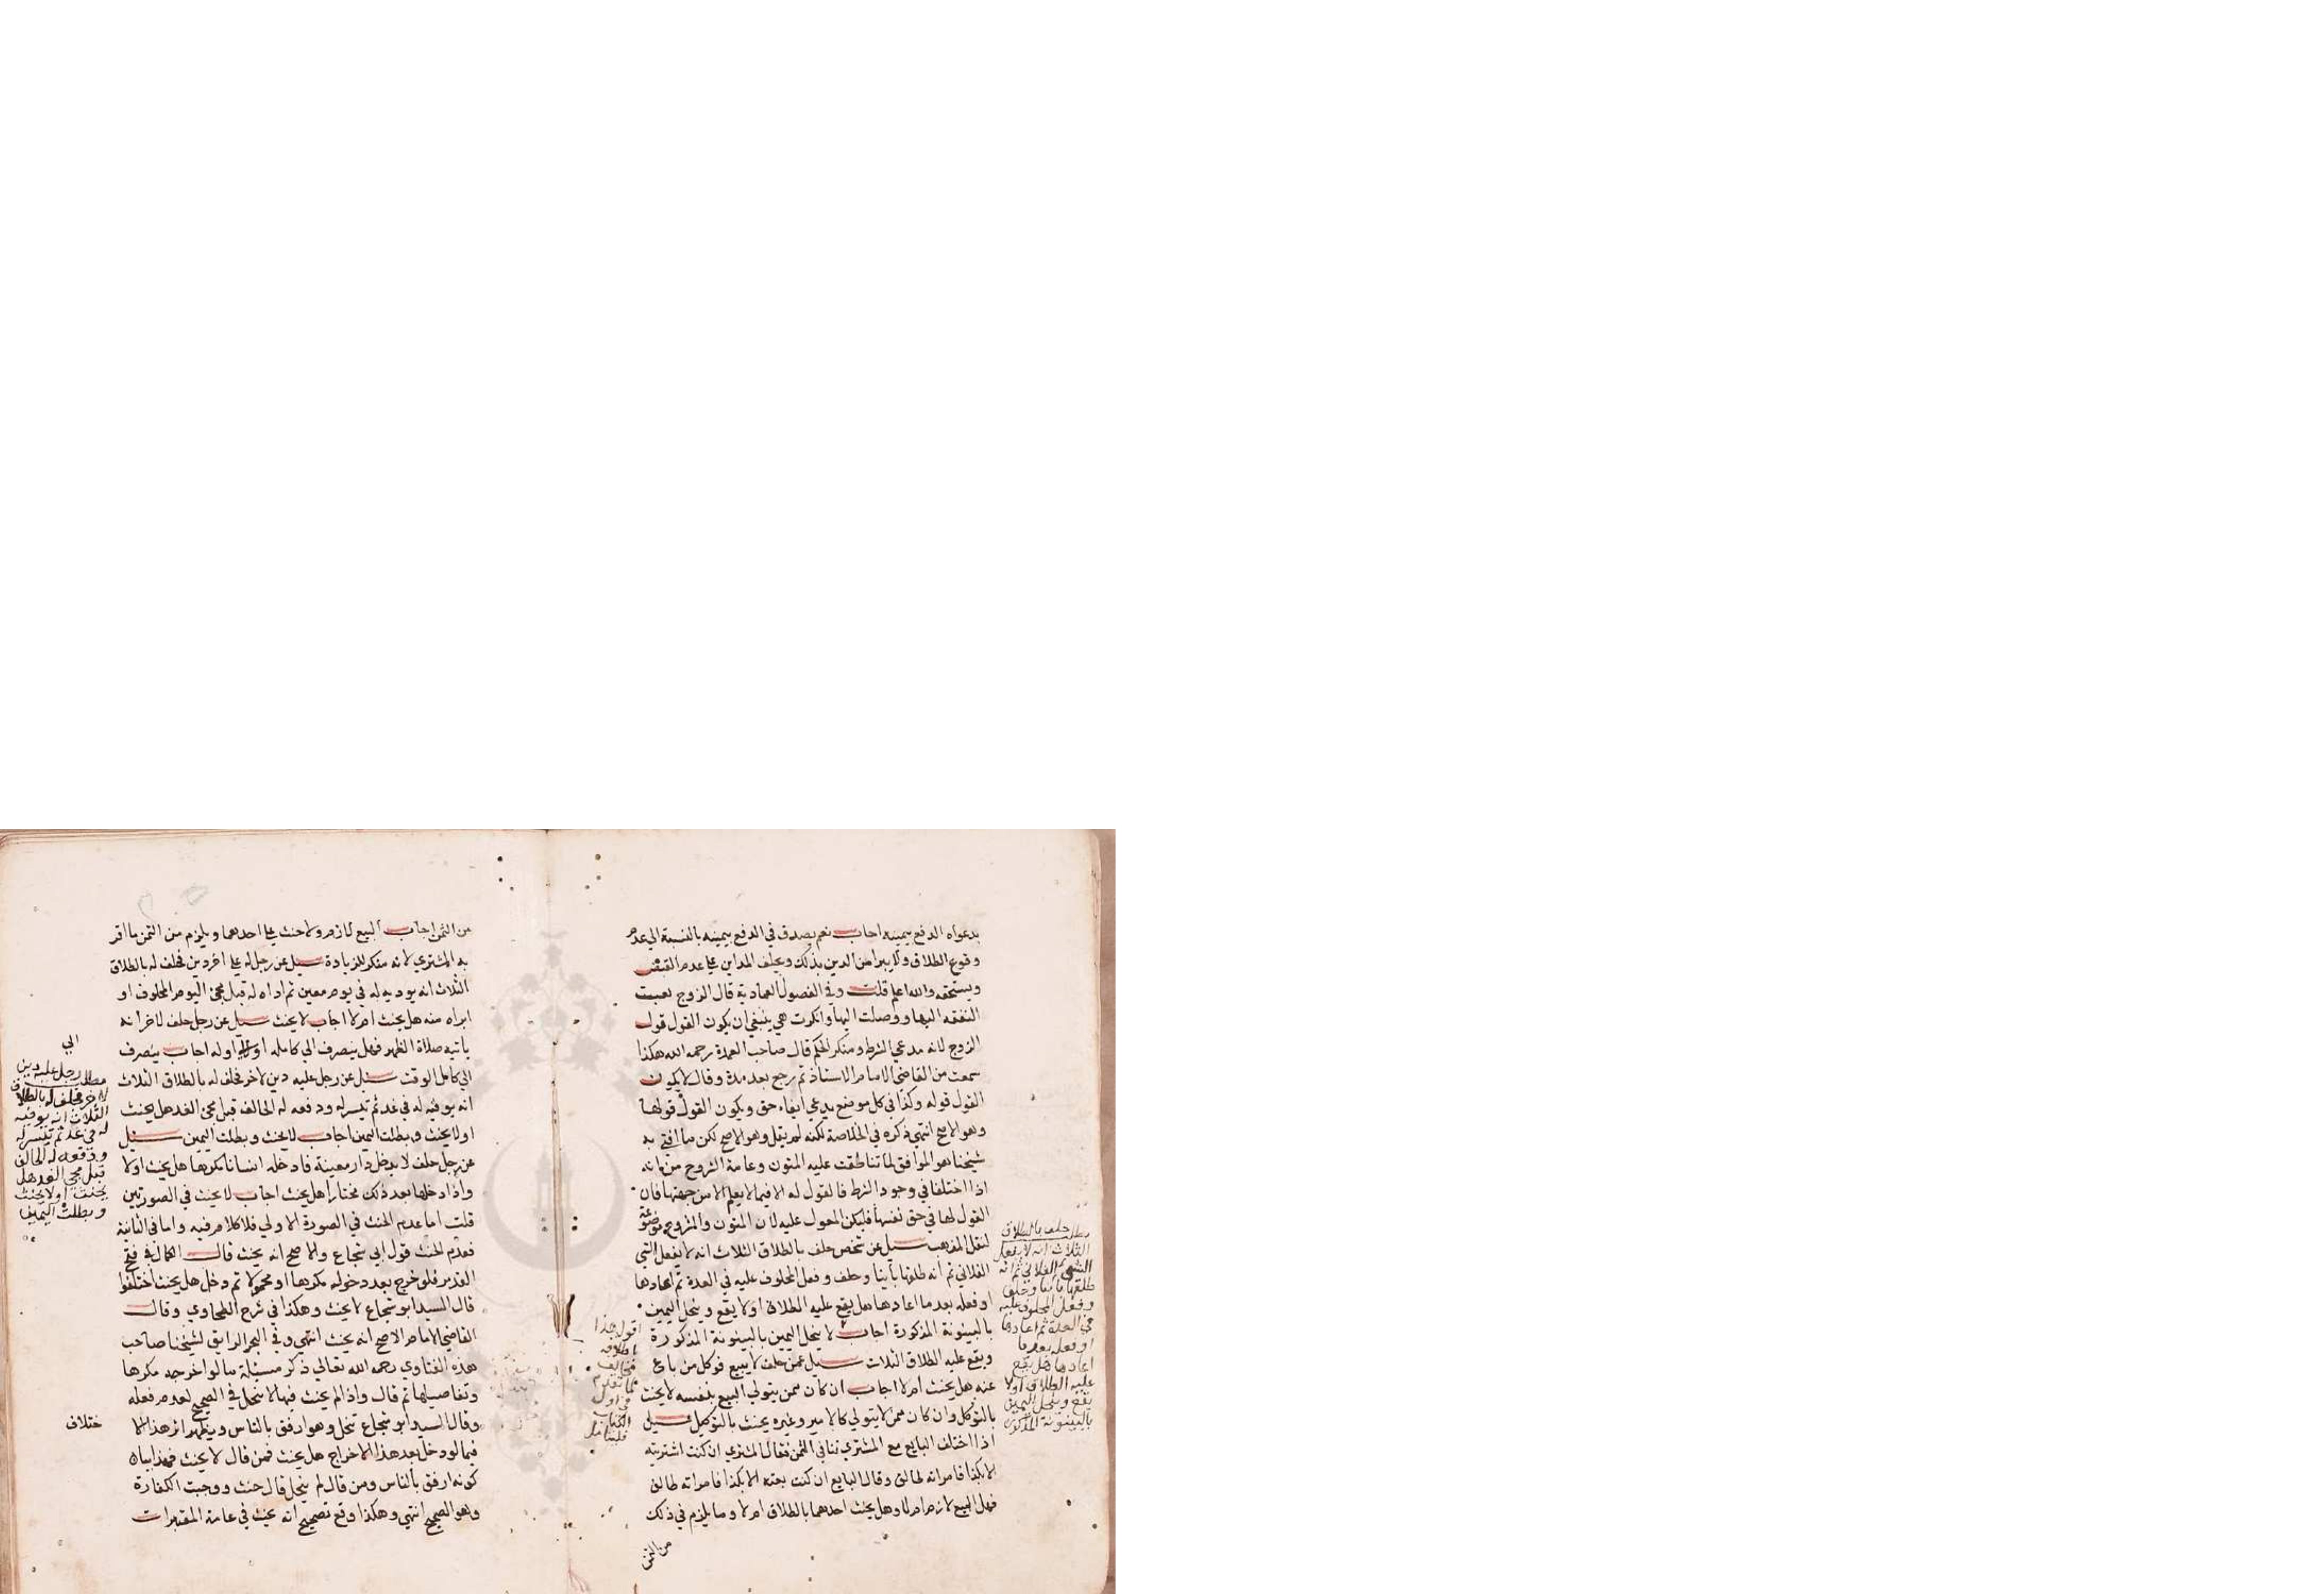 بدعواه الدفع بيمينه اجاب نعم يصدق في الدفع بيمينه بالنسبة الي عدم
وقوع الطلاق ولا يبرا من الدين بذلك ويحلف المداين علي عدم القبض
ويستحقه والله اعلم قلت وفي الفصول العمادية قال الزوج بعثت
النفقه اليها ووصلت اليها وانكرت هي ينبغي ان يكون القول قول
الزوج لانه مدعي الشرط ومنكر الحكم قال صاحب العمدة رحمه الله هكذا
سمعت من القاضي الامام الاستاذ ثم رجع بعد مدة وقال لا يكون
القول قوله وكذا في كل موضع يدعي ايفاء حق ويكون القول قولها
وهو الاصح انتهي ذكره في الخلاصة لكنه لم يقل وهو الاصح لكن ما افتي به
شيخنا هو الموافق لما تناطقت عليه المتون وعامة الشروح من انه
اذا اختلفا في وجود الشرط فالقول له الا فيما لا يعلم الا من جهتها فان
القول لها في حق نفسها فليكن المعول عليه لان المتون والشروح موضوعة
لنقل المذهب سيل عن شخص حلف بالطلاق الثلاث انه لا يفعل الشي
الفلاني ثم انه طلقها باينا وحلف وفعل المحلوف عليه في العدة ثم اعادها
او فعله بعد ما اعادها هل يقع عليه الطلاق او لا يقع وينحل اليمين
بالبينونة المذكورة اجاب لا ينحل اليمين بالبينونة المذكورة
ويقع عليه الطلاق الثلاث سيل عمن حلف لا يبيع فوكل من باع
عنه هل يحنث ام لا اجاب ان كان ممن يتولي البيع بنفسه لا يحنث
بالتوكل وان كان ممن لا يتولي كالامير وغيره يحنث بالتوكيل سيل
اذا اختلف البايع مع المشتري في الثمن فقال المشتري ان كنت اشتريته
الا بكذا فامراته طالق وقال البايع ان كنت بعته الا بكذا فامراته طالق
فهل البيع لازم ام لا وهل يحنث احدهما بالطلاق ام لا وما يلزم في ذلك
من الثمن
حلف بالطلاق
الثلاث انه لا يفعل
الشي الفلاني ثم انه
طلقها باينا وحلف
وفعل المحلوف عليه
في العدة ثم اعادها
او فعله بعد ما
اعادها هل يقع
عليه الطلاق او لا
يقع وينحل اليمين
بالبينونة المذكورة
اقول هذا
اطلاقه
مخالف
لما تقدم
في اول
الكتاب
فليتامل
من الثمن اجاب البيع لازم ولا حنث علي احدهما ويلزم من الثمن ما اقر
به المشتري لانه منكر للزيادة سيل عن رجل له علي اخر دين فحلف له بالطلاق
الثلاث انه يوديه له في يوم معين ثم اداه له قبل مجئ اليوم المحلوف او
ابراه منه هل يحنث ام لا اجاب لا يحنث سيل عن رجل حلف لاخر انه
ياتيه صلاة الظهر فهل ينصرف الي كامله او اوله اجاب ينصرف
الي كامل الوقت سيل عن رجل عليه دين لاخر فحلف له بالطلاق الثلاث
انه يوفيه له في غد ثم تيسر له ودفعه له الحالف قبل مجئ الغد هل يحنث
او لا يحنث وبطلت اليمين اجاب لا يحنث وبطلت اليمين سيل
عن رجل حلف لا يدخل دار معينة فادخله انسانا مكرها هل يحنث او لا
واذا دخلها بعد ذلك مختارا هل يحنث اجاب لا يحنث في الصورتين
قلت اما عدم الحنث في الصورة الاولي فلا كلام فيه واما في الثانية
فعدم الحنث قول ابي شجاع والاصح انه يحنث قال الكمال في فتح
القدير فلو خرج بعد دخوله مكرها او محمولا ثم دخل هل يحنث اختلفوا
قال السيد ابو شجاع لا يحنث وهكذا في شرح الطحاوي وقال
القاضي الامام الاصح انه يحنث انتهي وفي البحر الرايق لشيخنا صاحب
هذه الفتاوي رحمه الله تعالي ذكر مسئلة ما لو اخرجه مكرها
وتفاصيلها ثم قال واذا لم يحنث فيها لا ينحل في الصحيح لعدم فعله
وقال السيد ابو شجاع تنحل وهو ارفق بالناس ويظهر اثر هذا الا
ختلاف
فيما لو دخل بعد هذا الاخراج هل يحنث فمن قال لا يحنث فهذا بيان
كونه ارفق بالناس ومن قال لم ينحل قال حنث ووجبت الكفارة
وهو الصحيح انتهي وهكذا وقع تصحيح انه يحنث في عامة المعتبرات
ابي
مطلب رجل عليه دين
لاخر فحلف له بالطلاق
الثلاث انه يوفيه
له في غد ثم تيسر له
ودفعه له الحالف
قبل مجئ الغد هل
يحنث او لا يحنث
وبطلت اليمين